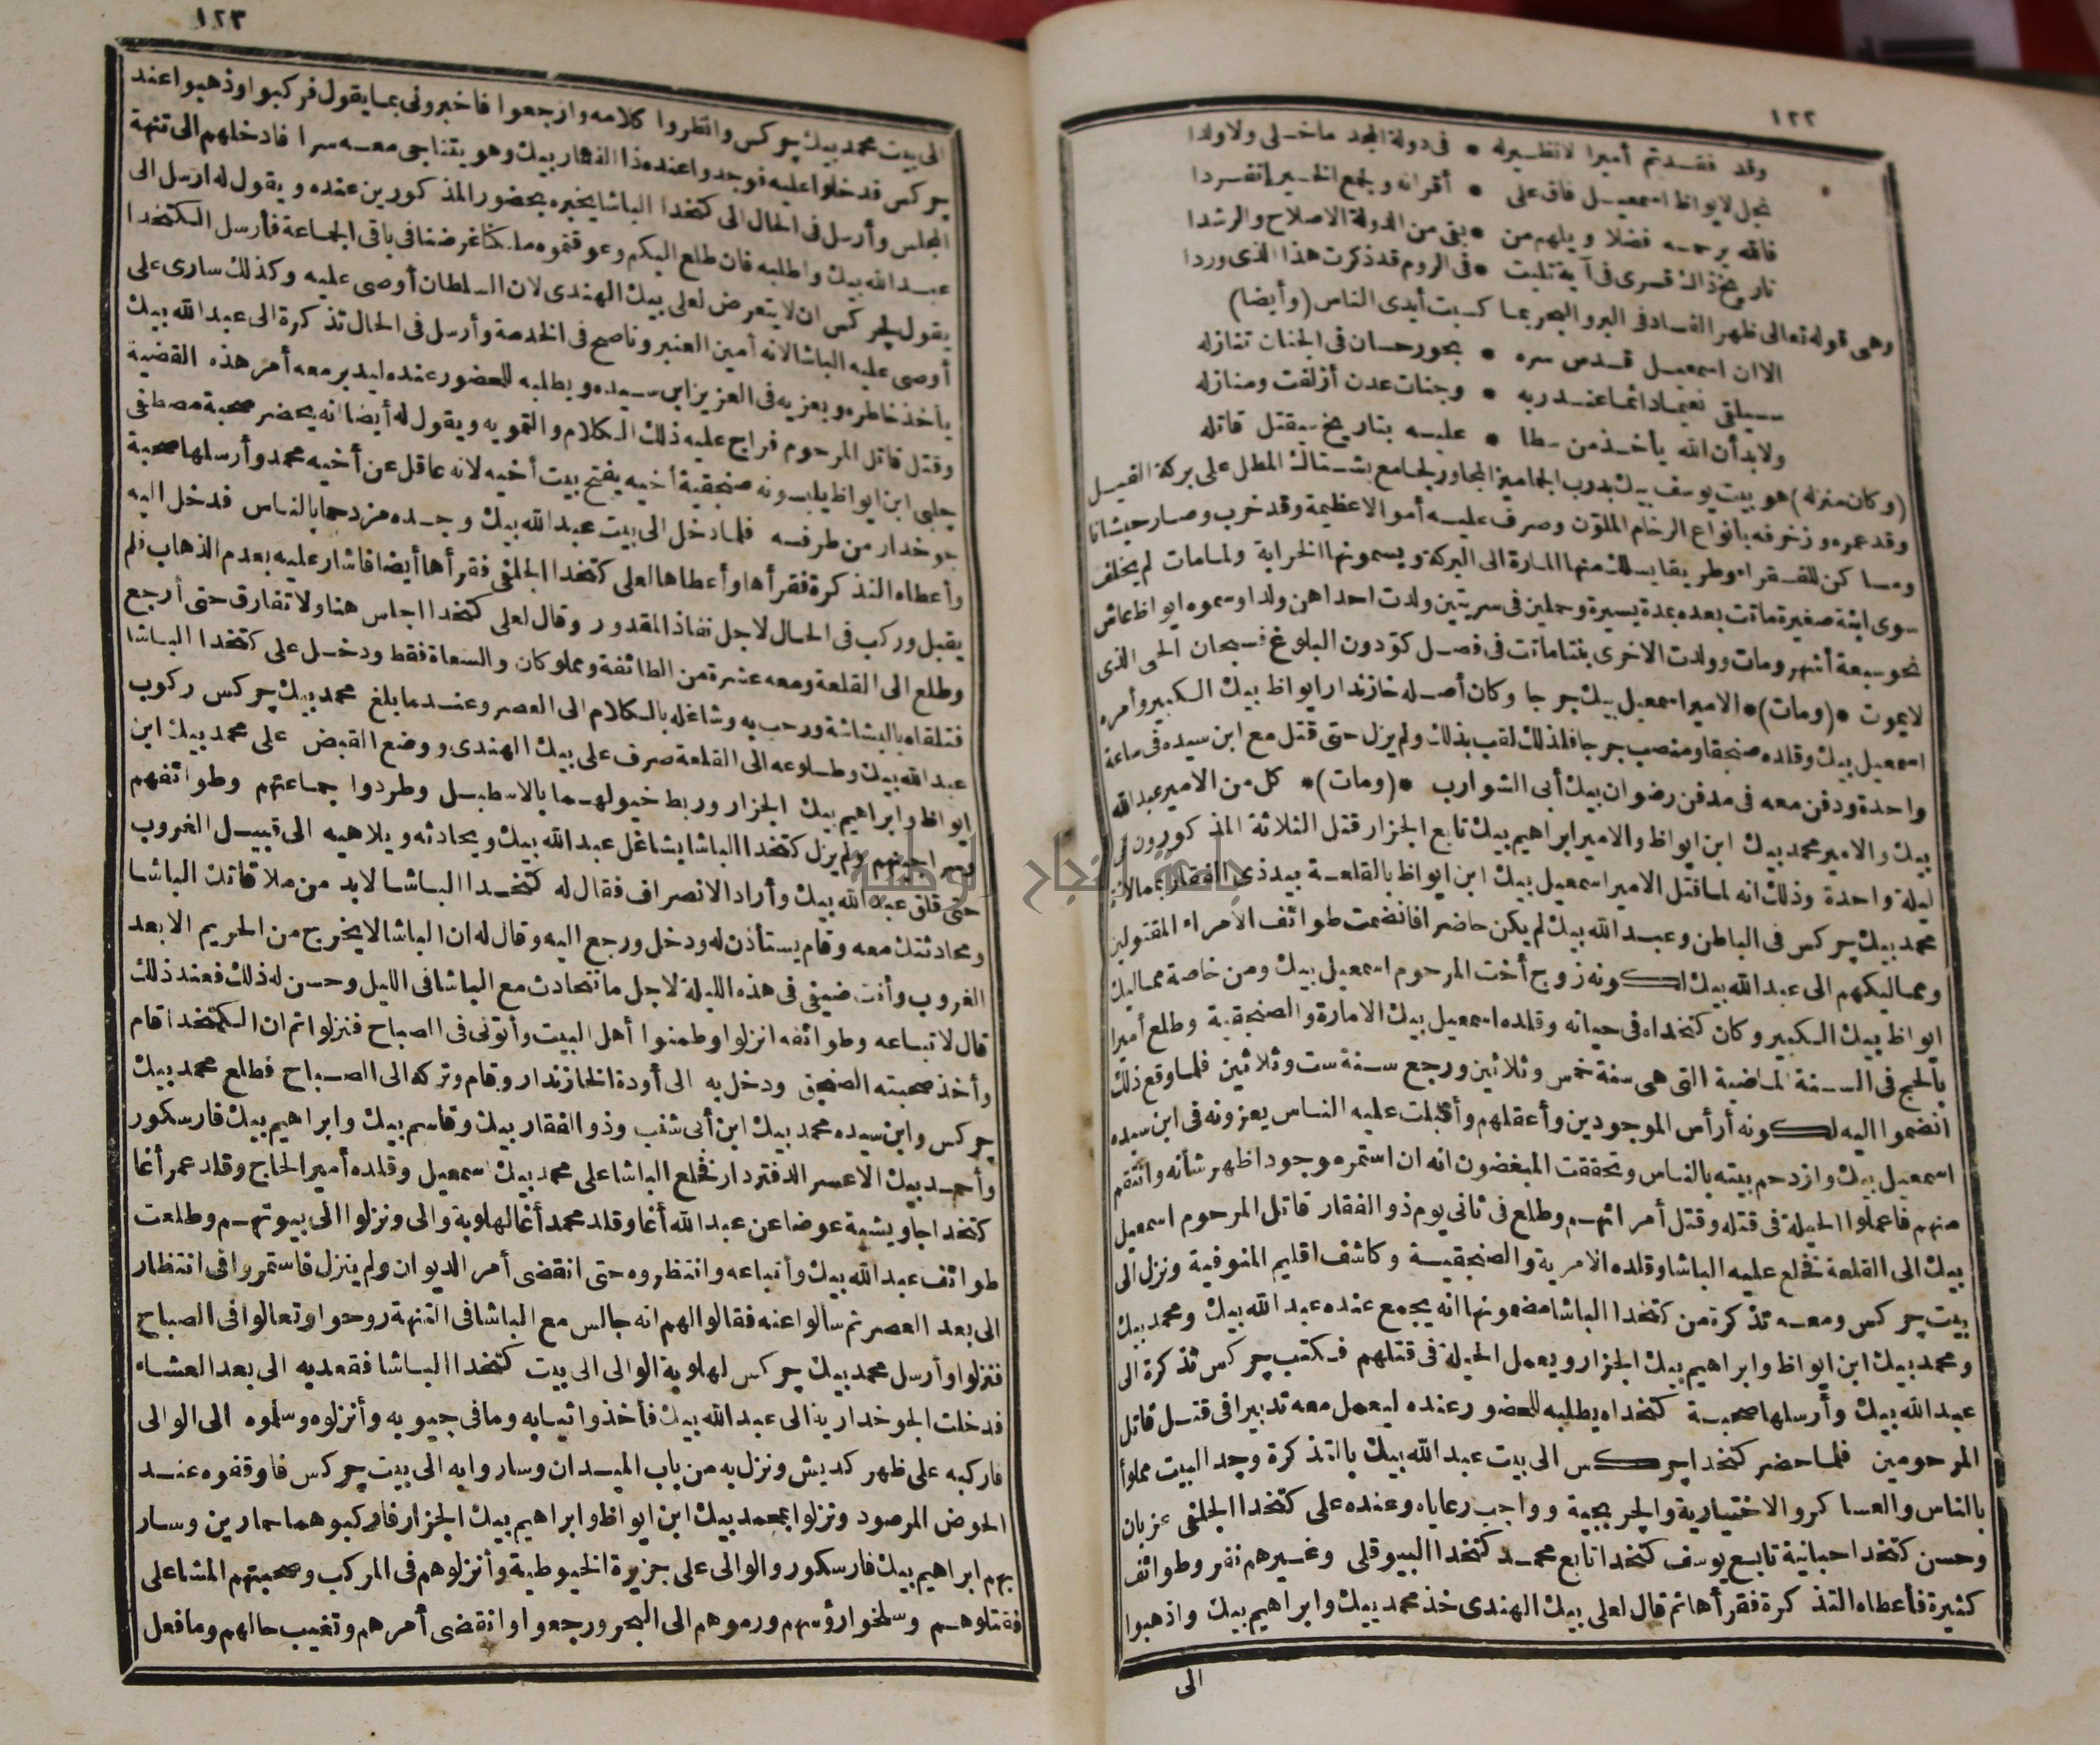 ١٢٢
وقد فقدتم أميرا لانظيرله * فى دولة المجد ماخلى ولاولدا
نجل لايواظ اسمعيل فاق على * أقرانه ويجمع الخير انفردا
فالله يرحمه فضلا ويلهم من * بقى من الدولة الاصلاح والرشدا
تاريخ ذاك قسرى فى آية تليت * فى الروم قد ذكرت هذا الذى وردا
وهى قوله تعالى ظهر الفساد فى البر والبحر بما كسبت أيدى الناس (وأيضا)
الا ان اسمعيل قدس سره * بحور حسان فى الجنان تنازله
سيلقى نعيما دائما عند ربه * وجنات عدن أزلفت ومنازله
ولابد أن الله يأخذ من سطا * عليه بتاريخ سيقتل قاتله
(وكان منزله) هو بيت يوسف بيك بدرب الجماميز المجاور لجامع بشتاك المطل على بركة الفيل
وقد عمره وزخرفه بأنواع الرخام الملون وصرف عليه أموالا عظيمة وقد خرب وصار حيشانا
ومساكن للفقراء وطريقا يسلك منها المارة الى البركة ويسمونها الخرابة ولما مات لم يخلف
سوى ابنة صغيرة ماتت بعده بمدة يسيرة وحملين فى سريتين ولدت احداهن ولدا وسموه ايواظ عاش
نحو سبعة أشهر ومات وولدت الاخرى بنتا ماتت فى فصل كو دون البلوغ فسبحان الحى الذى
لايموت *(ومات)* الامير اسمعيل بيك جرجا وكان أصله خازندار ايواظ بيك الكبير وأمره
اسمعيل بيك وقلده صنجقا ومنصب جرجا فلذلك لقب بذلك ولم يزل حتى قتل مع ابن سيده فى ساعة
واحدة ودفن معه فى مدفن رضوان بيك أبى الشوارب *(ومات)* كل من الامير عبد الله
بيك والامير محمد بيك ابن ايواظ والامير ابراهيم بيك تابع الجزار قتل الثلاثة المذكورون فى
ليلة واحدة وذلك انه لما قتل الامير اسمعيل بيك ابن ايواظ بالقلعة بيد ذى الفقار بممالأة
محمد بيك چركس فى الباطن وعبد الله بيك لم يكن حاضرا فانضمت طوائف الأمراء المقتولين
ومماليكهم الى عبد الله بيك لكونه زوج أخت المرحوم اسمعيل بيك ومن خاصة مماليك
ايواظ بيك الكبير وكان كتخداه فى حياته وقلده اسمعيل بيك الامارة والصنجقية وطلع أميرا
بالحج فى السنة الماضية التى هى سنة خمس وثلاثين ورجع سنة ست وثلاثين فلما وقع ذلك
انضموا اليه لكونه أرأس الموجودين وأعقلهم وأقبلت عليه الناس يعزونه فى ابن سيده
اسمعيل بيك وازدحم بيته بالناس وتحققت المبغضون انه ان استمر موجودا ظهر شأنه وانتقم
منهم فاعملوا الحيلة فى قتله وقتل أمرائهم وطلع فى ثانى يوم ذو الفقار قاتل المرحوم اسمعيل
بيك الى القلعة فخلع عليه الباشا وقلده الامرية والصنجقية وكاشف اقليم المنوفية ونزل الى
بيت چركس ومعه تذكرة من كتخدا الباشا مضمونها انه يجمع عنده عبد الله بيك ومحمد بيك
ومحمد بيك ابن ايواظ وابراهيم بيك الجزار ويعمل الحيلة فى قتلهم فكتب چركس تذكرة الى
عبد الله بيك وأرسلها صحبة كتخداه يطلبه للحضور عنده ليعمل معه تدبيرا فى قتل قاتل
المرحومين فلما حضر كتخدا چركس الى بيت عبد الله بيك بالتذكرة وجد البيت مملوأ
بالناس والعساكر والاختيارية والجربجية وواجب رعاياه وعنده على كتخدا الجلفى عزبان
وحسن كتخدا حبانية تابع يوسف كتخدا تابع محمد كتخدا البيوقلى وغيرهم نفر وطوائف
كثيرة فأعطاه التذكرة فقرأها ثم قال لعلى بيك الهندى خذ محمد بيك وابراهيم بيك واذهبوا
الى
١٢٣
الى بيت محمد بيك چركس وانظروا كلامه وارجعوا فاخبرونى بما يقول فركبوا وذهبوا عند
چركس فدخلوا عليه فوجدوا عنده ذا الفقار بيك وهو يتناجى معه سرا فادخلهم الى تنهة
المجلس وأرسل فى الحال الى كتخدا الباشا يخبره بحضور المذكورين عنده ويقول له ارسل الى
عبد الله بيك واطلبه فان طلع اليكم وعوقتموه ملكنا غرضنا فى باقى الجماعة فأرسل الكتخدا
يقول لچركس ان لا يتعرض لعلى بيك الهندى لان السلطان أوصى عليه وكذلك سارى على
أوصى عليه الباشا لانه أمين العنبر وناصح فى الخدمة وأرسل فى الحال تذكرة الى عبد الله بيك
يأخذ خاطره ويعزيه فى العزيز ابن سيده ويطلبه للحضور عنده ليدبر معه أمر هذه القضية
وقتل قاتل المرحوم فراج عليه ذلك الكلام والتمويه ويقول له أيضا انه يحضر صحبة مصطفى
جلبى ابن ايواظ يلبسونه صنجقية أخيه يفتح بيت أخيه لانه عاقل عن أخيه محمد وأرسلها صحبة
جوخدار من طرفه فلما دخل الى بيت عبد الله بيك وجده مزدحما بالناس فدخل اليه
وأعطاه التذكرة فقرأها وأعطاها لعلى كتخدا الجلفى فقرأها أيضا فاشار عليه بعدم الذهاب فلم
يقبل وركب فى الحال لاجل نفاذ المقدور وقال لعلى كتخدا اجلس هنا ولا تفارق حتى أرجع
وطلع الى القلعة ومعه عشرة من الطائفة ومملوكان والسعاة فقط ودخل على كتخدا الباشا
فتلقاه بالبشاشة ورحب به وشاغله بالكلام الى العصر وعندما بلغ محمد بيك چركس ركوب
عبد الله بيك وطلوعه الى القلعة صرف على بيك الهندى ووضع القبض على محمد بيك ابن
ايواظ وابراهيم بيك الجزار وربط خيولهما بالاسطبل وطردوا جماعتهم وطوائفهم
وسراجينهم ولم يزل كتخدا الباشا يشاغل عبد الله بيك ويحادثه ويلاهيه الى قبيل الغروب
حتى قلق عبد الله بيك وأراد الانصراف فقال له كتخدا الباشا لابد من ملاقاتك الباشا
ومحادثتك معه وقام يستأذن له ودخل ورجع اليه وقال له ان الباشا لا يخرج من الحريم الا بعد
الغروب وأنت ضيفى فى هذه الليلة لاجل ما نتحادث مع الباشا فى الليل وحسن له ذلك فعند ذلك
قال لاتباعه وطوائفه انزلوا وطمنوا أهل البيت وأتونى فى الصباح فنزلوا ثم ان الكتخدا قام
وأخذ صحبته الصنجق ودخل به الى أودة الخازندار وقام وتركه الى الصباح فطلع محمد بيك
چركس وابن سيده محمد بيك ابن أبى شنب وذو الفقار بيك وقاسم بيك وابراهيم بيك فارسكور
وأحمد بيك الاعسر الدفتردار فخلع الباشا على محمد بيك اسمعيل وقلده أمير الحاج وقلد عمر أغا
كتخدا جاويشية عوضا عن عبد الله أغا وقلد محمد أغا لهلوبة والى ونزلوا الى بيوتهم وطلعت
طوائف عبد الله بيك وأتباعه وانتظروه حتى انقضى أمر الديوان ولم ينزل فاستمروا فى انتظار
الى بعد العصر ثم سألوا عنه فقالوا لهم انه جالس مع الباشا فى التنهة روحوا وتعالوا فى الصباح
فنزلوا وأرسل محمد بيك چركس لهلوبة الوالى الى بيت كتخدا الباشا فقعد به الى بعد العشاء
فدخلت الجوخدارية الى عبد الله بيك فأخذوا ثيابه وما فى جيوبه وأنزلوه وسلموه الى الوالى
فاركبه على ظهر كديش ونزل به من باب الميدان وساروا به الى بيت چركس فاوقفوه عند
الحوض المرصود ونزلوا بمحمد بيك ابن ايواظ وابراهيم بيك الجزار فاركبوهما حمارين وسار
بهم ابراهيم بيك فارسكور والوالى على جزيرة الخيوطية وأنزلوهم فى المركب وصحبتهم المشاعلى
فقتلوهم وسلخوا رؤسهم ورموهم الى البحر ورجعوا وانقضى أمرهم وتغيب حالهم وما فعل
جامعة النجاح الوطنية